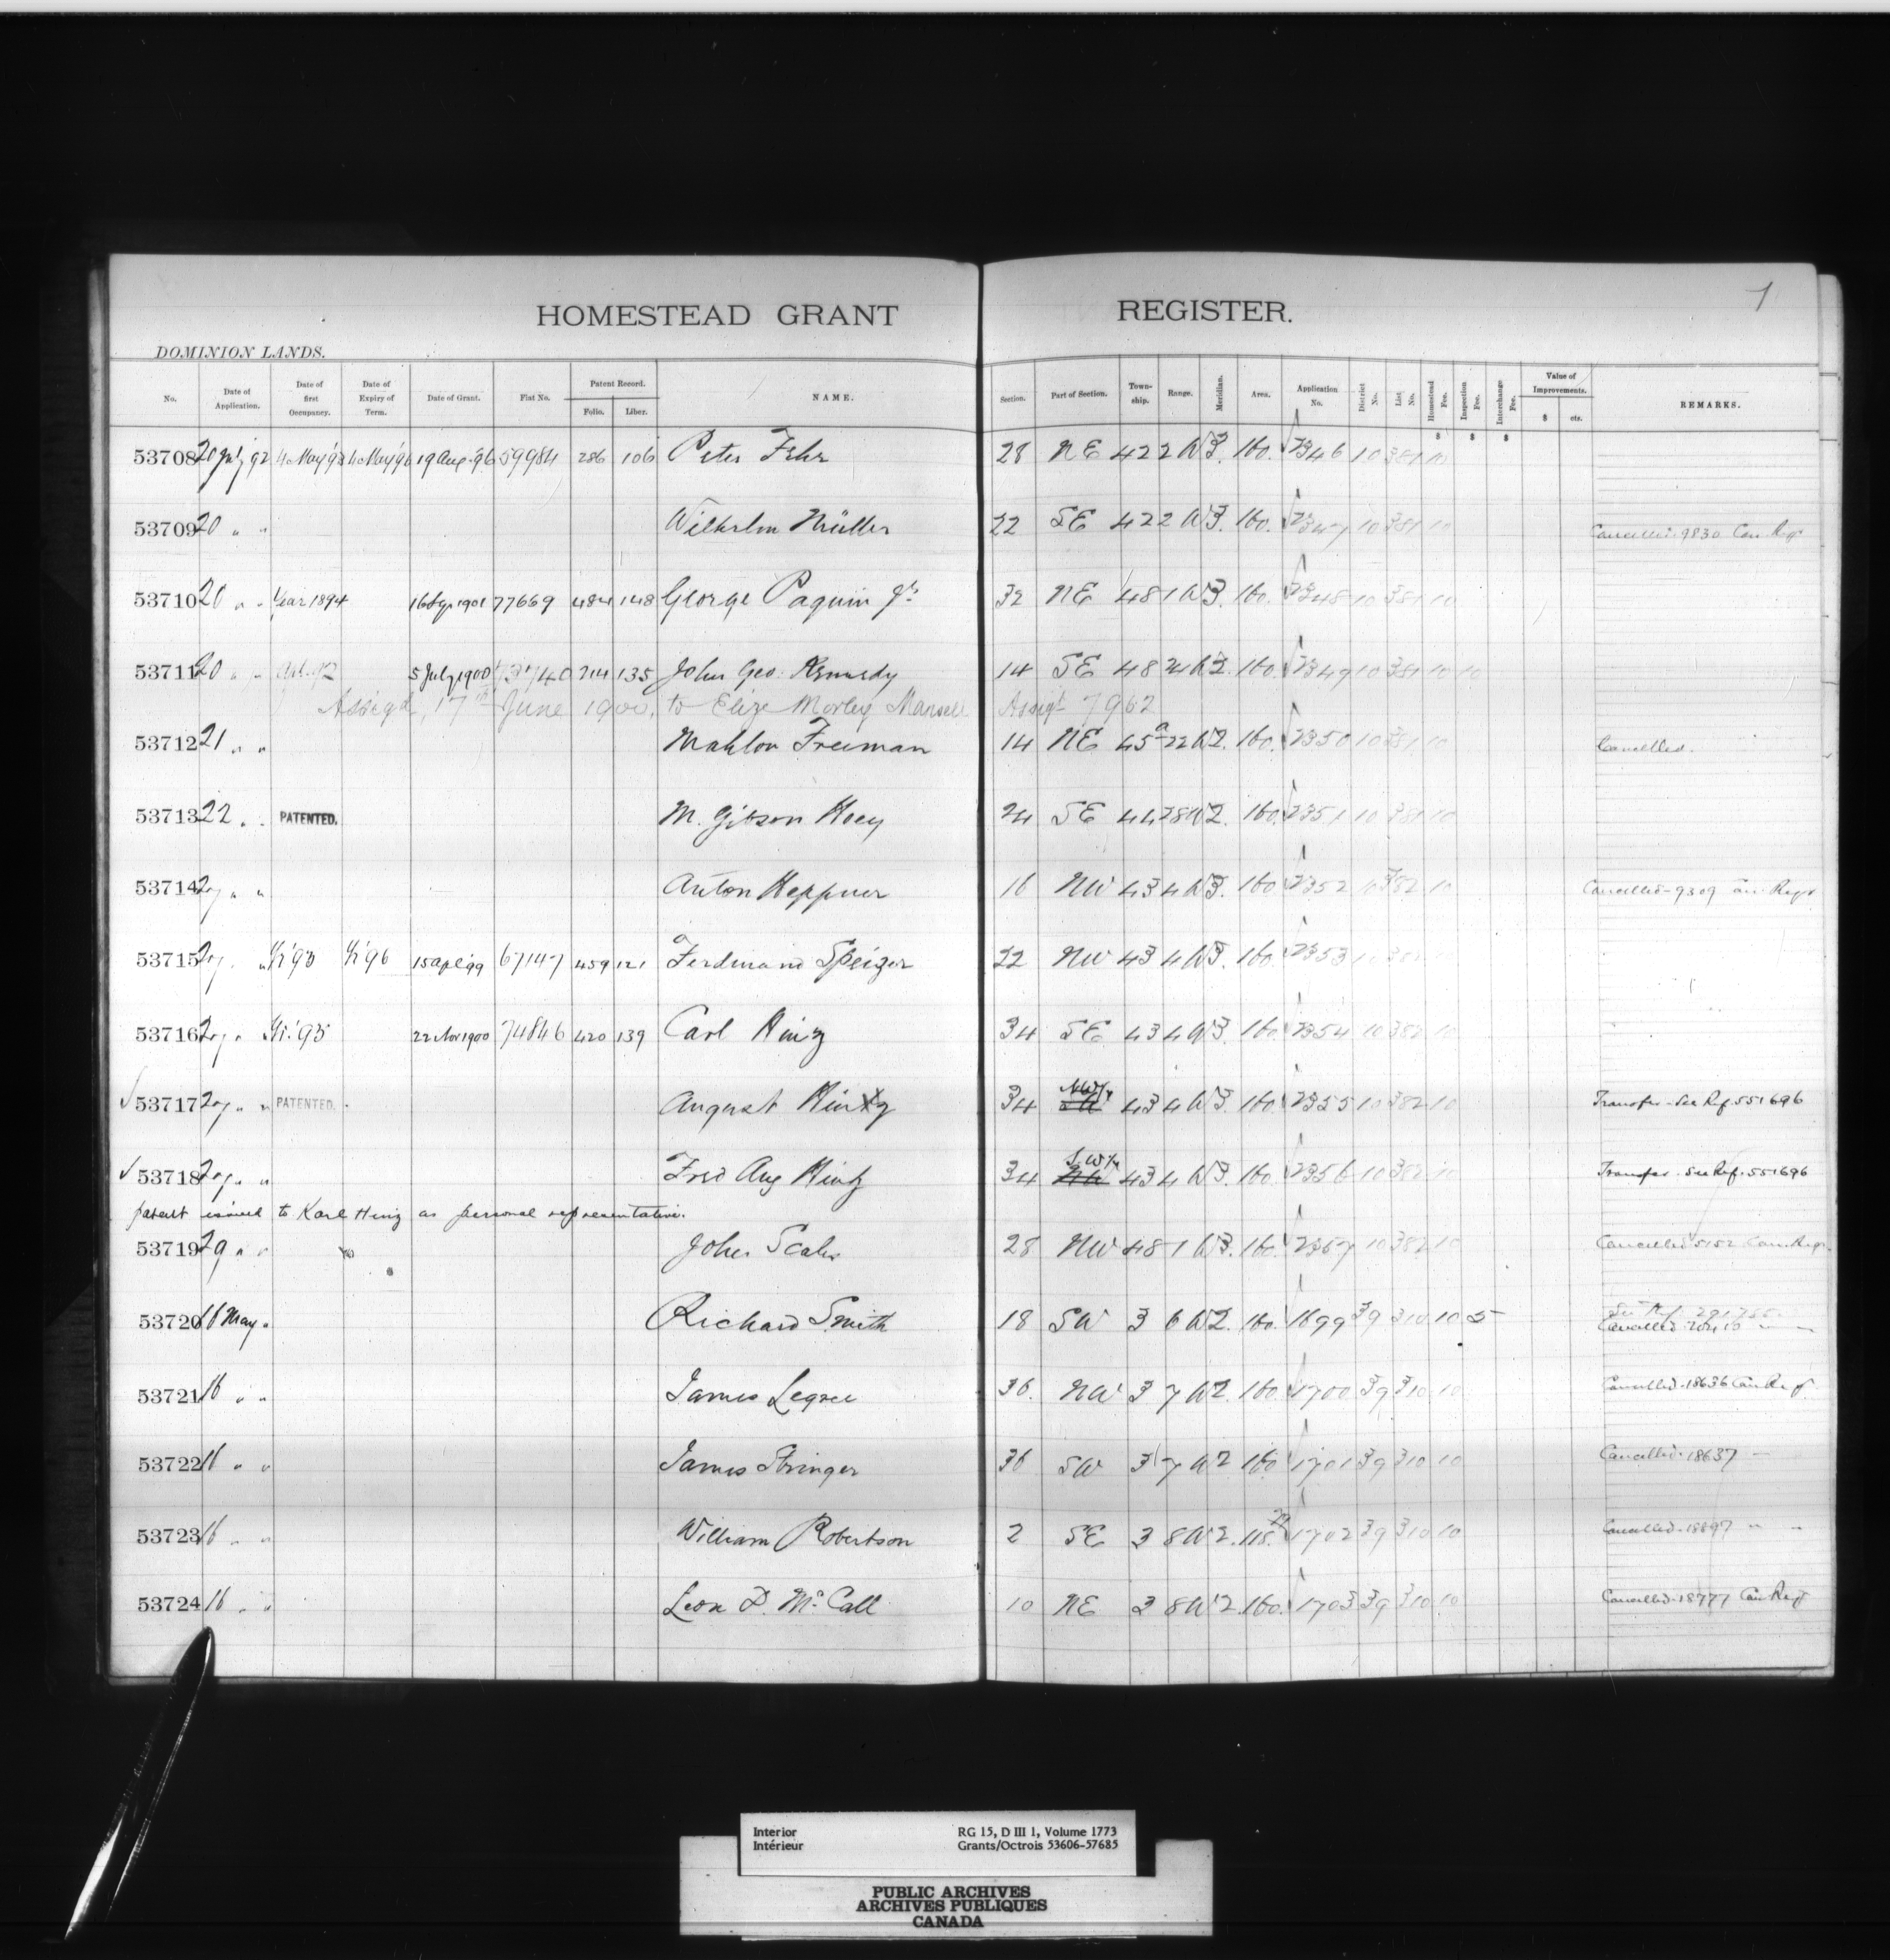 1
HOMESTEAD GRANT REGISTER.
DOMINION LANDS.
No. Date of Application. Date of first Occupancy. Date of Expiry of Term. Date of Grant. Fiat No. Patent Record. Folio. Liber. NAME. Section. Part of Section. Township. Range. Meridian. Area. Application No. District No. List No. Homestead Fee. Inspection Fee. Interchange Fee. Value of Improvements. $ cts. REMARKS.
$ $ $
53708 20 July 92 4 May 93 4 May 96 19 Aug. 96 59984 286 106 Peter Fehr 28 NE 42 2 W3. 160. 2346 10 381 10
53709 20 " " Wilhelm Müller 22 SE 42 2 W3. 160. 2347 10 381 10 Cancelled. 9830 Can. Regr
53710 20 " " Year 1894 16 Sep. 1901 77669 484 148 George Paquin Jr. 32 NE 48 1 W3. 160. 2348 10 381 10
53711 20 " " 5 July 1900 73740 214 135 John Geo. Kennedy 14 SE 48 W2. 160. 2349 10 381 10 10
Assigd, 17th June 1900, to Eliza Morley Mansell Assigt 7962
53712 21 " " Mahlon Freeman 14 NE 45a 22 W2. 160. 2350 10 381 10 Cancelled.
53713 22 " " PATENTED. M. Gibson Hoey 24 SE 44 28 W2. 160. 2351 10 381 10
53714 27 " " Anton Heppner 16 NW 43 4 W3. 160 2352 10 382 10 Cancelled-9309 Can. Regr
53715 27 " " Yr '93 Yr '96 15 Apl '99 67147 459 121 Ferdinand Speizer 22 NW 43 4 W3. 160. 2353 10 382 10
53716 27 " " Yr. '95 22 Nov 1900 74846 420 139 Carl Hinz 34 SE 43 4 W3. 160. 2354 10 382 10
53717 27 " " PATENTED. August Hintz 34 NW¼ 43 4 W3. 160. 2355 10 382 10 Transfer - See Ref. 551696
53718 27 " " Fred Aug Hintz 34 S.W¼ 43 4 W3. 160. 2356 10 382 10 Transfer - See Ref. 551696
patent issued to Karl Hinz as personal representative.
53719 29 " " John Scales 28 NW 48 1 W3. 160. 2357 10 382 10 Cancelled 5152 Can. Regr.
53720 16 May " Richard Smith 18 SW 3 6 W2. 160. 1699 39 310 10 5 See Ref. 291755
Cancelled " "
53721 16 " " James Legree 36. NW 3 7 W2. 160. 1700 39 310 10 Cancelled. 18636 Can. Regr
53722 16 " " James Stringer 36 SW 3 7 W2 160 1701 39 310 10 Cancelled. 18637 "
53723 16 " " William Robertson 2 SE 3 8 W2. 118. 1702 39 310 10 Cancelled. 18897 " "
53724 16 " " Leon D. McCall 10 NE 3 8 W2. 160. 1703 39 310 10 Cancelled. 18777 Can. Regr
Interior RG 15, D III 1, Volume 1773
Intérieur Grants/Octrois 53606-57685
PUBLIC ARCHIVES
ARCHIVES PUBLIQUES
CANADA